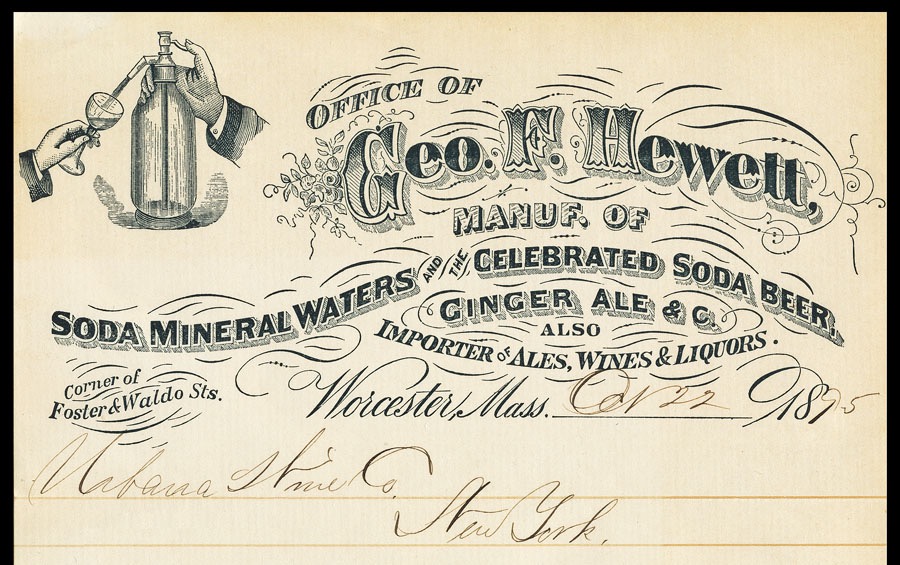 OFFICE OF
Geo. F. Hewett,
MANUF. OF
SODA MINERAL WATERS AND THE CELEBRATED SODA BEER,
GINGER ALE & C.
ALSO
IMPORTER OF ALES, WINES & LIQUORS.
Corner of
Foster & Waldo Sts.
Worcester, Mass. Oct 22 1875
Urbana Wine Co.
New York.